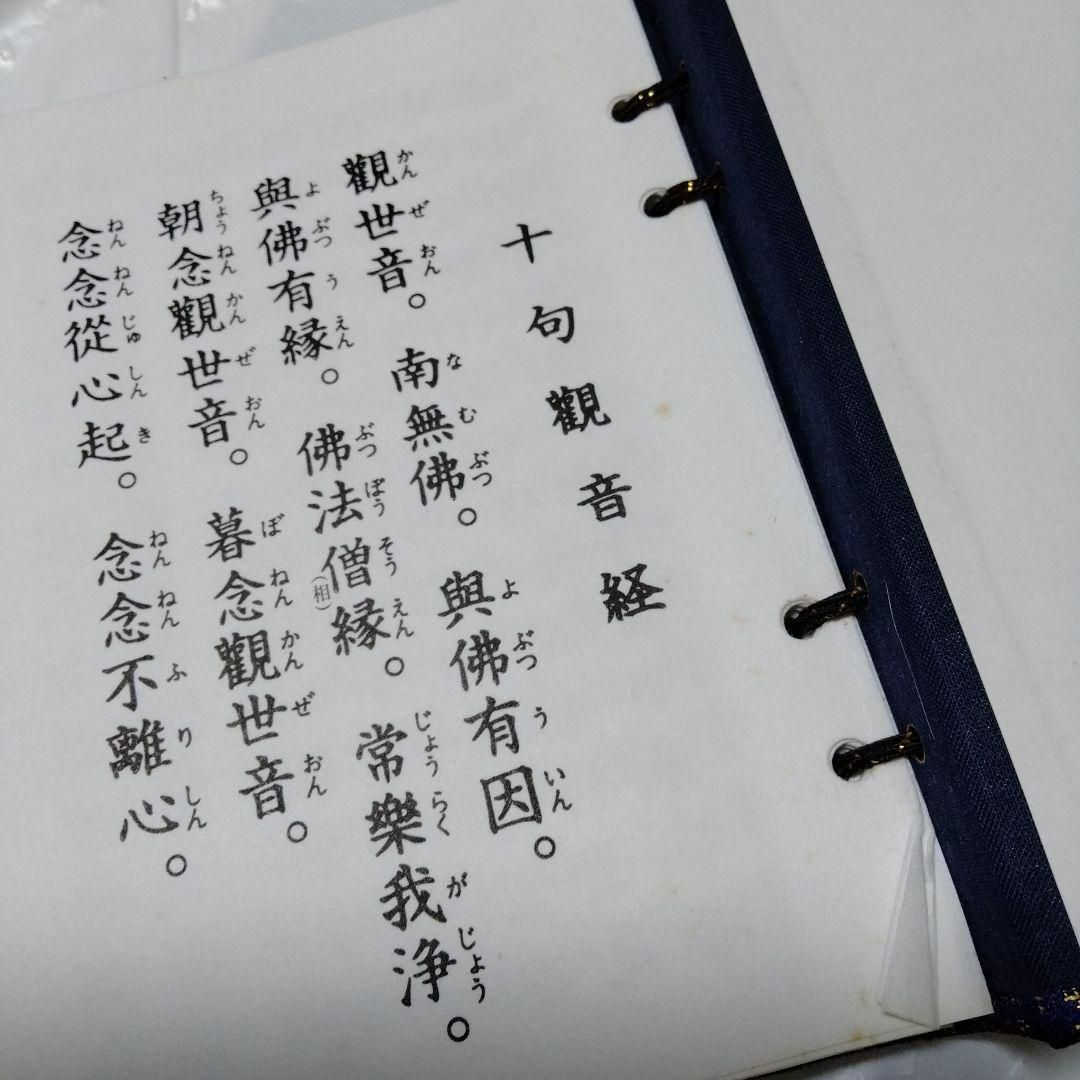 十句觀音経
觀世音。南無佛。與佛有因。
かんぜおん なむぶつ よぶつういん
與佛有縁。佛法僧縁。常樂我浄。
よぶつうえん ぶつぽうそうえん じょうらくがじょう
(相)
朝念觀世音。暮念觀世音。
ちょうねんかんぜおん ぼねんかんぜおん
念念從心起。念念不離心。
ねんねんじゅしんき ねんねんふりしん